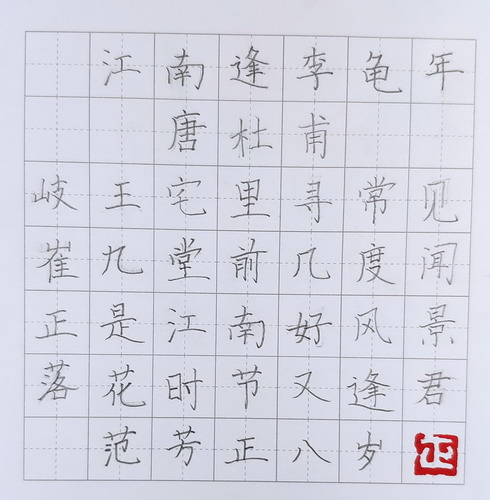 江南逢李龟年
唐杜甫
岐王宅里寻常见
崔九堂前几度闻
正是江南好风景
落花时节又逢君
范芳正八岁